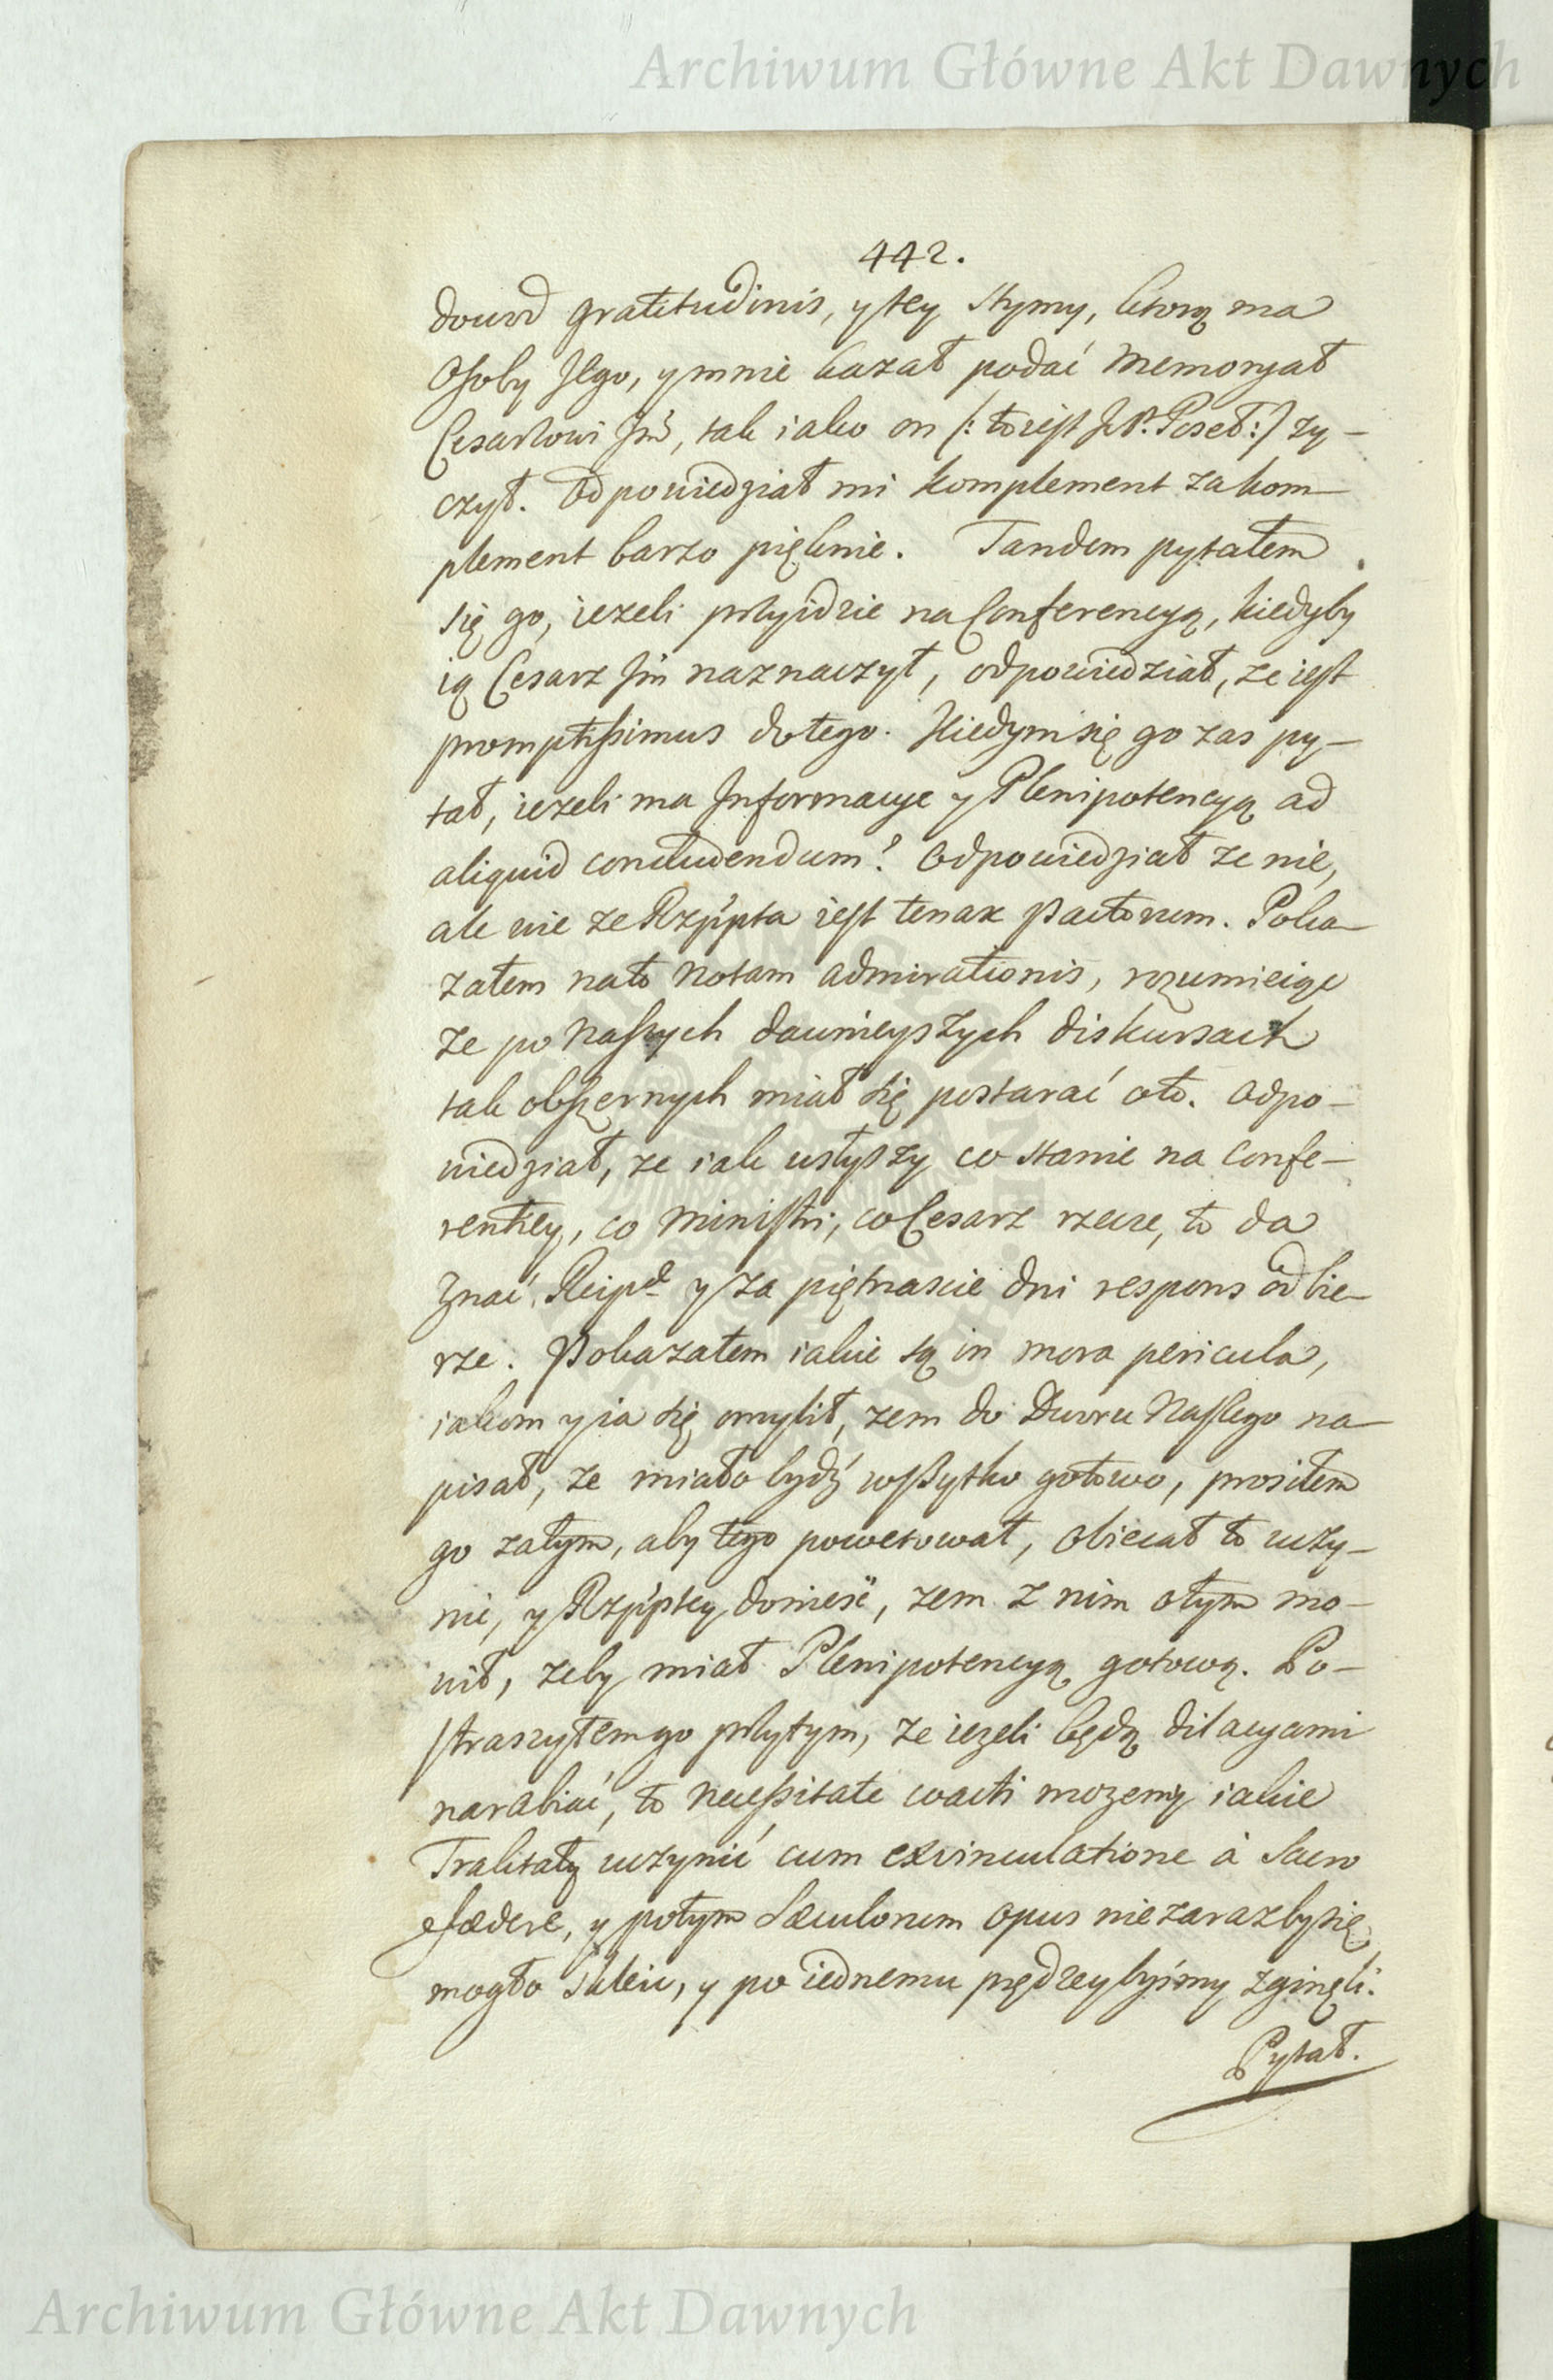 Archiwum Główne Akt Dawnych
442.
dowod gratitudinis, y tey stymy, ktorą ma
Osoby JEgo, y mnie kazał podać Memoryał
Cesarzowi Jmć, tak iako on /: to iest J P. Poseł :/ zy-
czył. Odpowiedział mi komplement za kom-
plement barzo pięknie. Tandem pytałem
się go, iezeli przyidzie na Conferencyą, kiedyby
ią Cesarz Jm naznaczył, odpowiedział, ze iest
promptissimus do tego. Kiedym się go zas py-
tał, iezeli ma Informacye y Plenipotencyą ad
aliquid concludendum? Odpowiedział ze nie,
ale wie ze Rzppta iest tenax pactorum. Poka-
załem na to notam admirationis, rozumieiąc
ze po naszych dawnieyszych diskursach
tak obszernych miał się postarać o to. Odpo-
wiedział, ze iak usłyszy co stanie na Confe-
rentiey, co Ministri, co Cesarz rzecze, to da
znać Reipce y za piętnascie dni respons odbie-
rze. Pokazałem iakie są in mora pericula,
iakom y ia się omylił, zem do Dworu Naszego na-
pisał, ze miało bydź wszytko gotowo, prosiłem
go zatym, aby tego powetował, obiecał to uczy-
nić, y Rzpptey donieść, zem z nim o tym mo-
wił, zeby miał Plenipotencyą gotową. Po-
straszyłem go przytym, ze iezeli będą dilacyami
narabiać, to necessitate coacti mozemy iakie
Traktaty uczynić cum exvinculatione à Sacro
Fædere, y potym Sæculorum opus nie zaraz by się
mogło skleić, y po iednemu prędzey byśmy zginęli.
Pytał.
Archiwum Główne Akt Dawnych